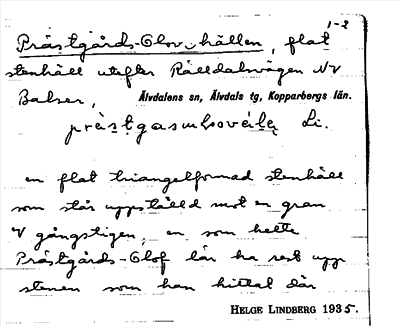 1-2
Prästgårds-Olov-hällen, flat
stenhäll utefter Rålldalsvägen NV
Balser, Älvdalens sn, Älvdals tg, Kopparbergs län.
Li.
en flat triangelformad stenhäll
som står uppställd mot en gran
V gångstigen, en som hette
Prästgårds-Olof lär ha rest upp
stenen som han hittat där
HELGE LINDBERG 1935.